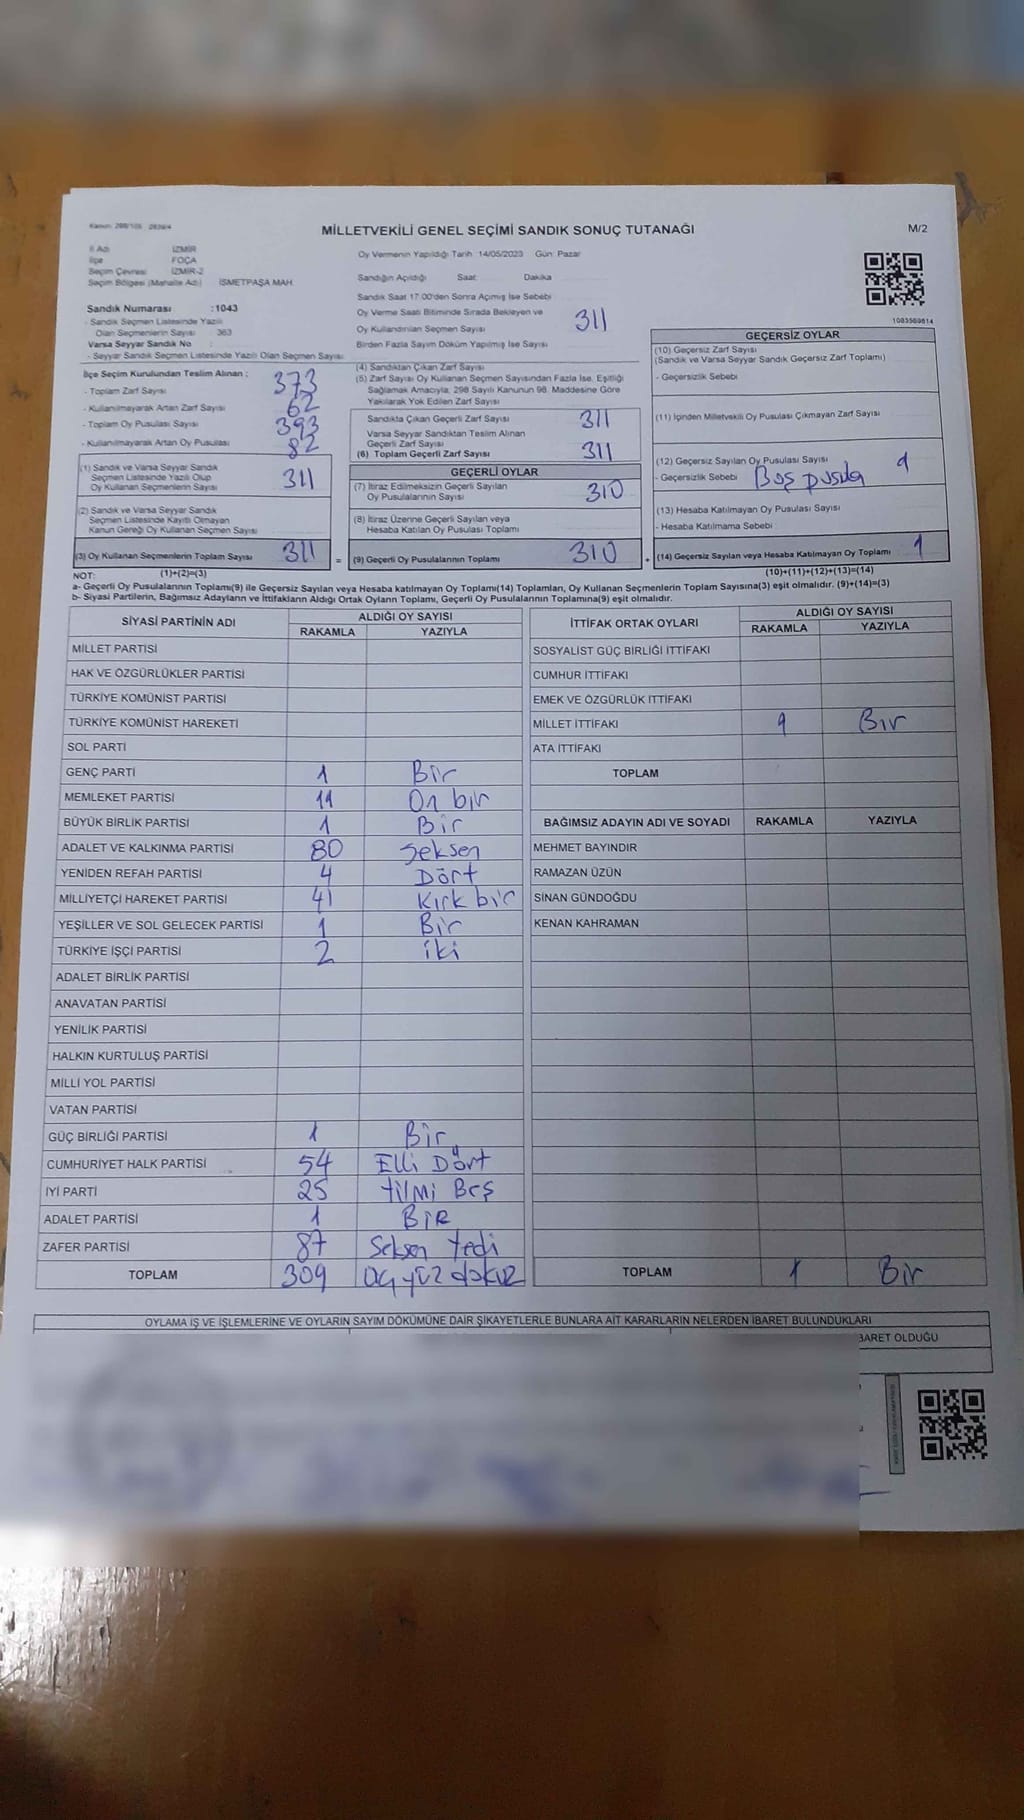 MİLLETVEKİLİ GENEL SEÇİMİ SANDIK SONUÇ TUTANAĞI
M/2
İl Adı İZMİR
İlçe FOÇA
Seçim Çevresi İZMİR-2
Seçim Bölgesi (Mahalle Adı) İSMETPAŞA MAH.
Sandık Numarası :1043
- Sandık Seçmen Listesinde Yazılı
Olan Seçmenlerin Sayısı 363
Varsa Seyyar Sandık No :
- Seyyar Sandık Seçmen Listesinde Yazılı Olan Seçmen Sayısı:
Oy Vermenin Yapıldığı Tarih 14/05/2023 Gün: Pazar
Sandığın Açıldığı Saat: Dakika
Sandık Saat 17.00'den Sonra Açımış İse Sebebi
Oy Verme Saati Bitiminde Sırada Bekleyen ve
Oy Kullandırılan Seçmen Sayısı 311
Birden Fazla Sayım Döküm Yapılmış İse Sayısı
1083569614
İlçe Seçim Kurulundan Teslim Alınan ;
- Toplam Zarf Sayısı 373
- Kullanılmayarak Artan Zarf Sayısı 62
- Toplam Oy Pusulası Sayısı 393
- Kullanılmayarak Artan Oy Pusulası 82
(1) Sandık ve Varsa Seyyar Sandık
Seçmen Listesinde Yazılı Olup
Oy Kullanan Seçmenlerin Sayısı 311
(2) Sandık ve Varsa Seyyar Sandık
Seçmen Listesinde Kayıtlı Olmayan
Kanun Gereği Oy Kullanan Seçmen Sayısı
(3) Oy Kullanan Seçmenlerin Toplam Sayısı 311 =
(1)+(2)=(3)
(4) Sandıktan Çıkan Zarf Sayısı
(5) Zarf Sayısı Oy Kullanan Seçmen Sayısından Fazla İse, Eşitliği
Sağlamak Amacıyla, 298 Sayılı Kanunun 98. Maddesine Göre
Yakılarak Yok Edilen Zarf Sayısı
Sandıkta Çıkan Geçerli Zarf Sayısı 311
Varsa Seyyar Sandıktan Teslim Alınan
Geçerli Zarf Sayısı
(6) Toplam Geçerli Zarf Sayısı 311
GEÇERLİ OYLAR
(7) İtiraz Edilmeksizin Geçerli Sayılan
Oy Pusulalarının Sayısı 310
(8) İtiraz Üzerine Geçerli Sayılan veya
Hesaba Katılan Oy Pusulası Toplamı
(9) Geçerli Oy Pusulalarının Toplamı 310 +
GEÇERSİZ OYLAR
(10) Geçersiz Zarf Sayısı
(Sandık ve Varsa Seyyar Sandık Geçersiz Zarf Toplamı)
- Geçersizlik Sebebi
(11) İçinden Milletvekili Oy Pusulası Çıkmayan Zarf Sayısı
(12) Geçersiz Sayılan Oy Pusulası Sayısı 1
- Geçersizlik Sebebi Boş pusula
(13) Hesaba Katılmayan Oy Pusulası Sayısı
- Hesaba Katılmama Sebebi
(14) Geçersiz Sayılan veya Hesaba Katılmayan Oy Toplamı 1
(10)+(11)+(12)+(13)=(14)
NOT:
a- Geçerli Oy Pusulalarının Toplamı(9) ile Geçersiz Sayılan veya Hesaba katılmayan Oy Toplamı(14) Toplamları, Oy Kullanan Seçmenlerin Toplam Sayısına(3) eşit olmalıdır. (9)+(14)=(3)
b- Siyasi Partilerin, Bağımsız Adayların ve İttifakların Aldığı Ortak Oyların Toplamı, Geçerli Oy Pusulalarının Toplamına(9) eşit olmalıdır.
SİYASİ PARTİNİN ADI ALDIĞI OY SAYISI
RAKAMLA YAZIYLA
MİLLET PARTİSİ
HAK VE ÖZGÜRLÜKLER PARTİSİ
TÜRKİYE KOMÜNİST PARTİSİ
TÜRKİYE KOMÜNİST HAREKETİ
SOL PARTİ
GENÇ PARTİ 1 Bir
MEMLEKET PARTİSİ 11 On bir
BÜYÜK BİRLİK PARTİSİ 1 Bir
ADALET VE KALKINMA PARTİSİ 80 Seksen
YENİDEN REFAH PARTİSİ 4 Dört
MİLLİYETÇİ HAREKET PARTİSİ 41 Kırk bir
YEŞİLLER VE SOL GELECEK PARTİSİ 1 Bir
TÜRKİYE İŞÇİ PARTİSİ 2 iki
ADALET BİRLİK PARTİSİ
ANAVATAN PARTİSİ
YENİLİK PARTİSİ
HALKIN KURTULUŞ PARTİSİ
MİLLİ YOL PARTİSİ
VATAN PARTİSİ
GÜÇ BİRLİĞİ PARTİSİ 1 Bir
CUMHURİYET HALK PARTİSİ 54 Elli Dört
İYİ PARTİ 25 Yilmi Beş
ADALET PARTİSİ 1 BİR
ZAFER PARTİSİ 87 Seksen Yedi
TOPLAM 309 Üç yüz dokuz
İTTİFAK ORTAK OYLARI ALDIĞI OY SAYISI
RAKAMLA YAZIYLA
SOSYALİST GÜÇ BİRLİĞİ İTTİFAKI
CUMHUR İTTİFAKI
EMEK VE ÖZGÜRLÜK İTTİFAKI
MİLLET İTTİFAKI 1 Bir
ATA İTTİFAKI
TOPLAM
BAĞIMSIZ ADAYIN ADI VE SOYADI RAKAMLA YAZIYLA
MEHMET BAYINDIR
RAMAZAN ÜZÜN
SİNAN GÜNDOĞDU
KENAN KAHRAMAN
TOPLAM 1 Bir
OYLAMA İŞ VE İŞLEMLERİNE VE OYLARIN SAYIM DÖKÜMÜNE DAİR ŞİKAYETLERLE BUNLARA AİT KARARLARIN NELERDEN İBARET BULUNDUKLARI
BARET OLDUĞU